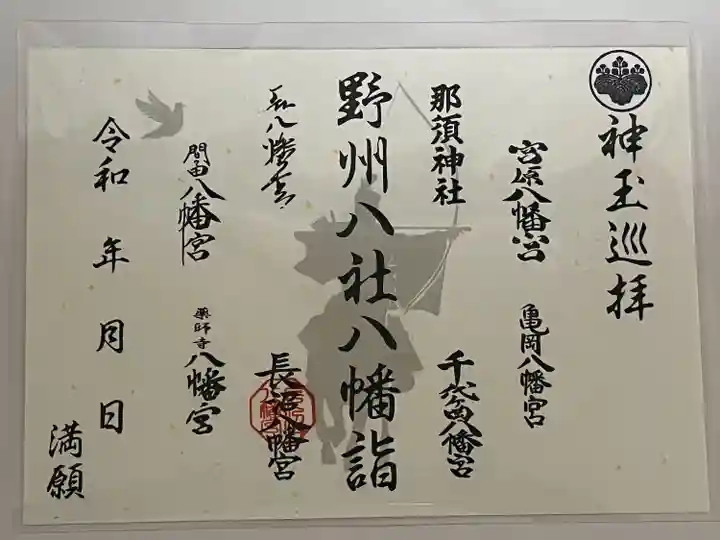 神玉巡拝
宮原八幡宮
亀岡八幡宮
那須神社
千代ヶ岡八幡宮
野州八社八幡詣
八幡宮
長沼八幡宮
間々田八幡宮
薬師寺八幡宮
令和 年 月 日
満願